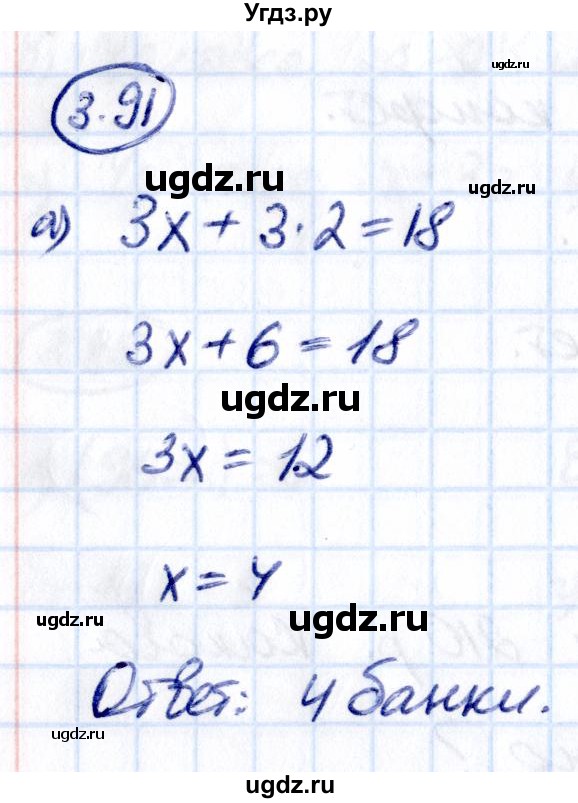 Угдз.ру
ugdz.ru
3.91
ugdz.ru
ugdz.ru
а) 3x + 3·2 = 18
3x + 6 = 18
ugdz.ru
3x = 12
x = 4
ugdz.ru
ugdz.ru
Ответ: 4 банки.
ugdz.ru
ugdz.ru
Угдз.ру